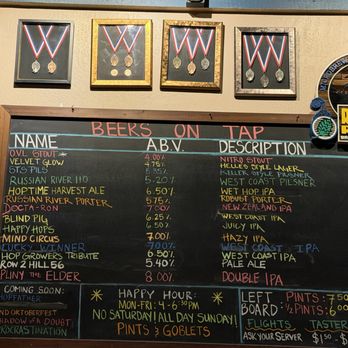 BEERS ON TAP
NAME A.B.V. DESCRIPTION
OVL STOUT 4.00% NITRO STOUT
VELVET GLOW 4.75% HELLES STYLE LAGER
STS PILS 5.35% KELLER STYLE PILSNER
RUSSIAN RIVER 110 5.20% WEST COAST PILSNER
HOPTIME HARVEST ALE 6.50% WET HOP IPA
RUSSIAN RIVER PORTER 5.75% ROBUST PORTER
DOCTA-RON 7.00% NEW ZEALAND IPA
BLIND PIG 6.25% WEST COAST IPA
HAPPY HOPS 6.50% JUICY IPA
MIND CIRCUS 7.00% HAZY IPA
LUCKY WINNER 7.00% WEST COAST IPA
HOP GROWERS TRIBUTE 6.50% WEST COAST IPA
ROW 2 HILL 56 5.40% PALE ALE
PLINY THE ELDER 8.00% DOUBLE IPA
COMING SOON:
HOPFATHER
OKTOBERFEST
SHADOW OF A DOUBT
PROCRASTINATION
HAPPY HOUR:
MON-FRI: 4-6:30PM
NO SATURDAY! ALL DAY SUNDAY!
PINTS & GOBLETS
LEFT PINTS: 7.50
BOARD: ½ PINTS:
FLIGHTS TASTER
ASK YOUR SERVER $1.50